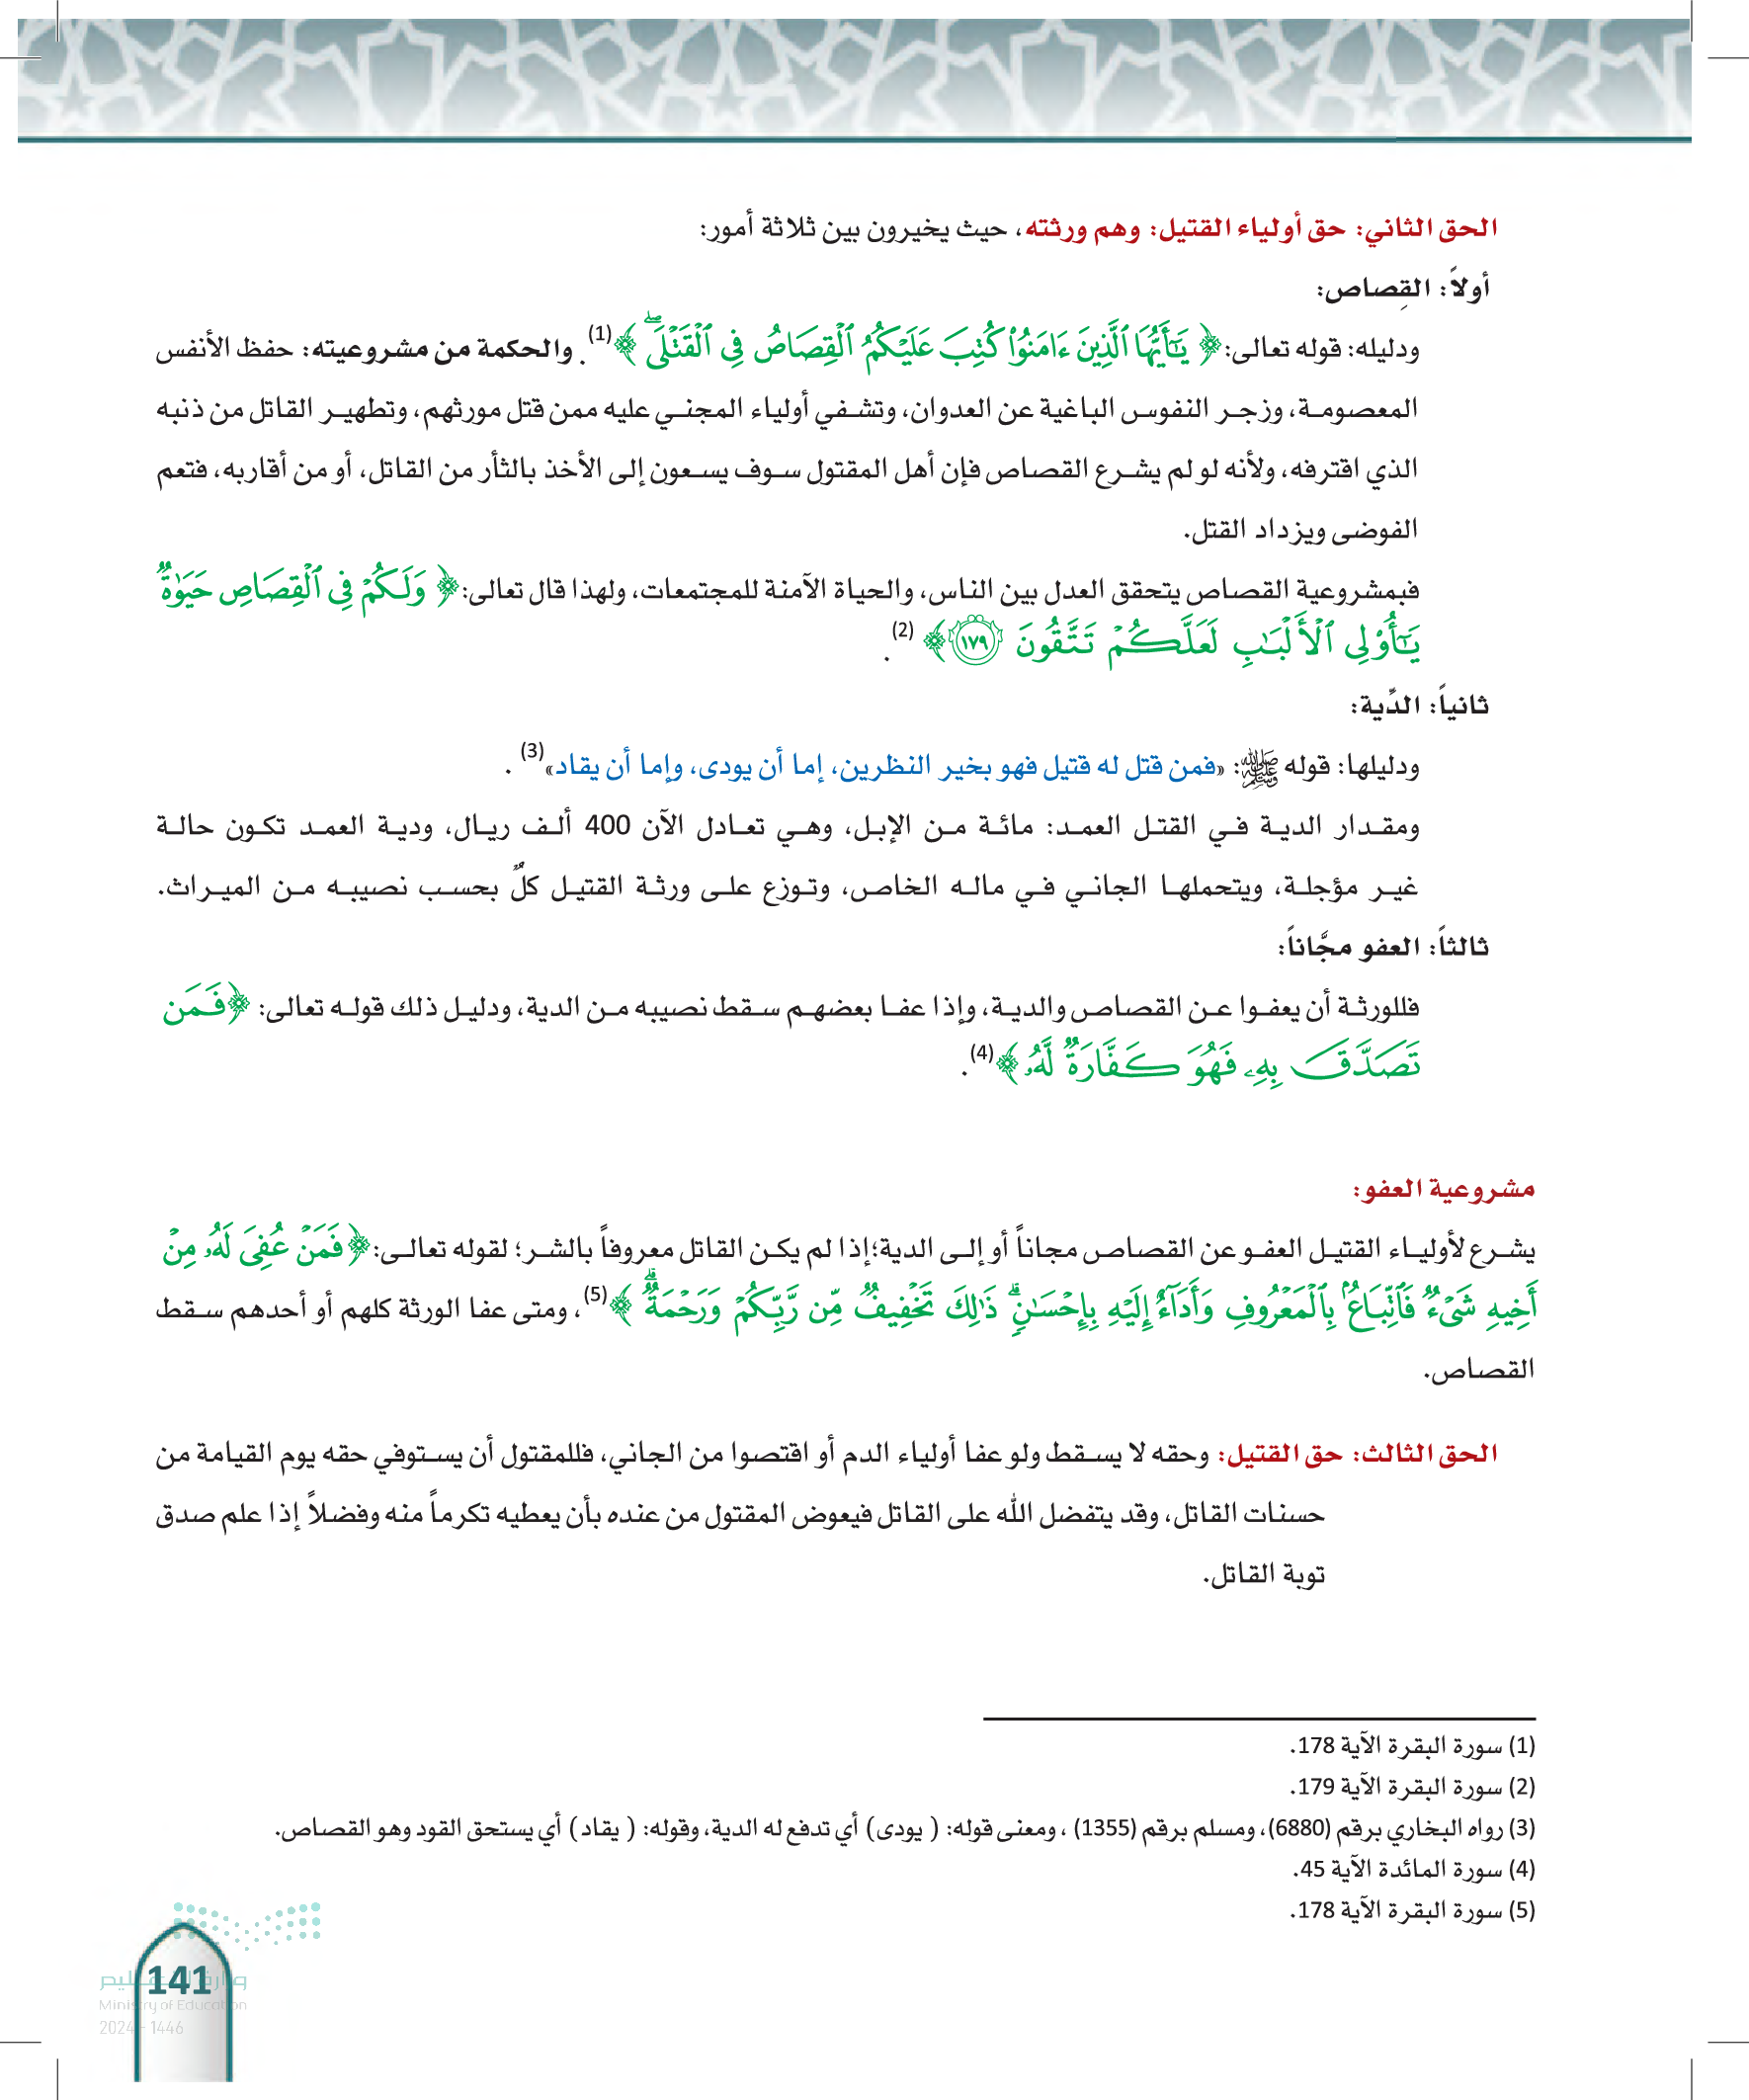 الحق الثاني: حق أولياء القتيل: وهم ورثته، حيث يخيرون بين ثلاثة أمور:
أولاً: القِصاص:
ودليله: قوله تعالى: ﴿ يَٰٓأَيُّهَا ٱلَّذِينَ ءَامَنُوا۟ كُتِبَ عَلَيْكُمُ ٱلْقِصَاصُ فِى ٱلْقَتْلَىۖ ﴾(1). والحكمة من مشروعيته: حفظ الأنفس
المعصومة، وزجر النفوس الباغية عن العدوان، وتشفي أولياء المجني عليه ممن قتل مورثهم، وتطهير القاتل من ذنبه
الذي اقترفه، ولأنه لو لم يشرع القصاص فإن أهل المقتول سوف يسعون إلى الأخذ بالثأر من القاتل، أو من أقاربه، فتعم
الفوضى ويزداد القتل.
فبمشروعية القصاص يتحقق العدل بين الناس، والحياة الآمنة للمجتمعات، ولهذا قال تعالى: ﴿ وَلَكُمْ فِى ٱلْقِصَاصِ حَيَوٰةٌ
يَٰٓأُو۟لِى ٱلْأَلْبَٰبِ لَعَلَّكُمْ تَتَّقُونَ ١٧٩ ﴾ (2).
ثانياً: الدِّية:
ودليلها: قوله ﷺ: «فمن قتل له قتيل فهو بخير النظرين، إما أن يودى، وإما أن يقاد»(3) .
ومقدار الدية في القتل العمد: مائة من الإبل، وهي تعادل الآن 400 ألف ريال، ودية العمد تكون حالة
غير مؤجلة، ويتحملها الجاني في ماله الخاص، وتوزع على ورثة القتيل كلٌ بحسب نصيبه من الميراث.
ثالثاً: العفو مجَّاناً:
فللورثة أن يعفوا عن القصاص والدية، وإذا عفا بعضهم سقط نصيبه من الدية، ودليل ذلك قوله تعالى: ﴿فَمَن
تَصَدَّقَ بِهِۦ فَهُوَ كَفَّارَةٌ لَّهُۥ ﴾(4).
مشروعية العفو:
يشرع لأولياء القتيل العفو عن القصاص مجاناً أو إلى الدية؛إذا لم يكن القاتل معروفاً بالشر؛ لقوله تعالى: ﴿فَمَنْ عُفِىَ لَهُۥ مِنْ
أَخِيهِ شَىْءٌ فَٱتِّبَاعٌۢ بِٱلْمَعْرُوفِ وَأَدَآءٌ إِلَيْهِ بِإِحْسَٰنٍۗ ذَٰلِكَ تَخْفِيفٌ مِّن رَّبِّكُمْ وَرَحْمَةٌۗ ﴾(5)، ومتى عفا الورثة كلهم أو أحدهم سقط
القصاص.
الحق الثالث: حق القتيل: وحقه لا يسقط ولو عفا أولياء الدم أو اقتصوا من الجاني، فللمقتول أن يستوفي حقه يوم القيامة من
حسنات القاتل، وقد يتفضل الله على القاتل فيعوض المقتول من عنده بأن يعطيه تكرماً منه وفضلاً إذا علم صدق
توبة القاتل.
(1) سورة البقرة الآية 178.
(2) سورة البقرة الآية 179.
(3) رواه البخاري برقم (6880)، ومسلم برقم (1355) ، ومعنى قوله: ( يودى) أي تدفع له الدية، وقوله: ( يقاد) أي يستحق القود وهو القصاص.
(4) سورة المائدة الآية 45.
(5) سورة البقرة الآية 178.
141
وزارة التعليم
Ministry of Education
2024 - 1446